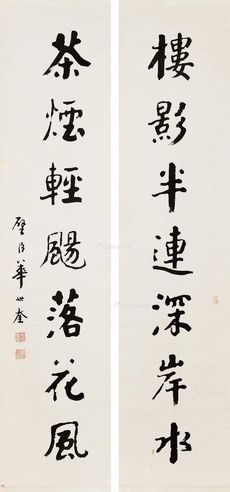 樓影半連深岸水
茶煙輕颺落花風
璧臣華世奎